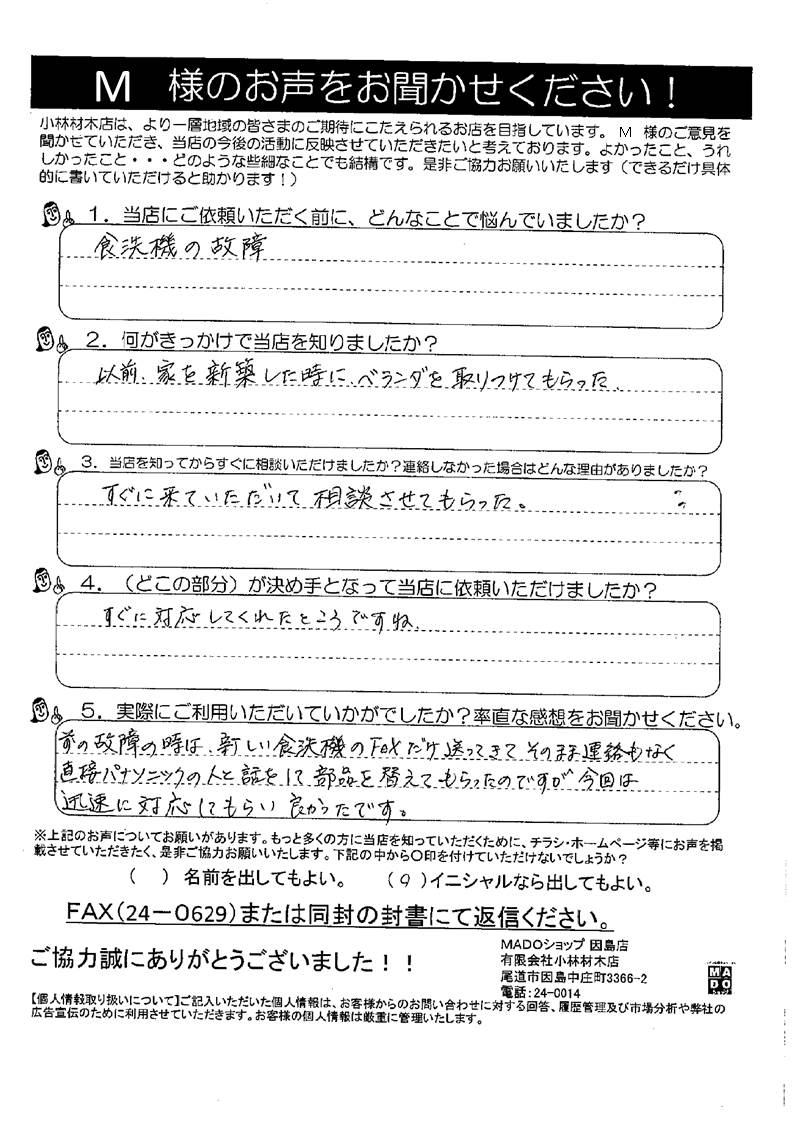 M 様のお声をお聞かせください！
小林材木店は、より一層地域の皆さまのご期待にこたえられるお店を目指しています。 M 様のご意見を
聞かせていただき、当店の今後の活動に反映させていただきたいと考えております。よかったこと、うれ
しかったこと・・・どのような些細なことでも結構です。是非ご協力お願いいたします（できるだけ具体
的に書いていただけると助かります！）
1．当店にご依頼いただく前に、どんなことで悩んでいましたか？
食洗機の故障
2．何がきっかけで当店を知りましたか？
以前、家を新築した時に、ベランダを取りつけてもらった。
3．当店を知ってからすぐに相談いただけましたか？連絡しなかった場合はどんな理由がありましたか？
すぐに来ていただいて相談させてもらった。
4．（どこの部分）が決め手となって当店に依頼いただけましたか？
すぐに対応してくれたところですね。
5．実際にご利用いただいていかがでしたか？率直な感想をお聞かせください。
前の故障の時は、新しい食洗機のFaxだけ送ってきてそのまま連絡もなく
直接パナソニックの人と話をして部品を替えてもらったのですが今回は
迅速に対応してもらい良かったです。
※上記のお声についてお願いがあります。もっと多くの方に当店を知っていただくために、チラシ・ホームページ等にお声を掲
載させていただきたく、是非ご協力お願いいたします。下記の中から〇印を付けていただけないでしょうか？
（ ）名前を出してもよい。 （○）イニシャルなら出してもよい。
FAX（24－0629）または同封の封書にて返信ください。
ご協力誠にありがとうございました！！
MADOショップ 因島店
有限会社小林材木店
尾道市因島中庄町3366-2
電話：24-0014
MADO
ショップ
【個人情報取り扱いについて】ご記入いただいた個人情報は、お客様からのお問い合わせに対する回答、履歴管理及び市場分析や弊社の
広告宣伝のために利用させていただきます。お客様の個人情報は厳重に管理いたします。